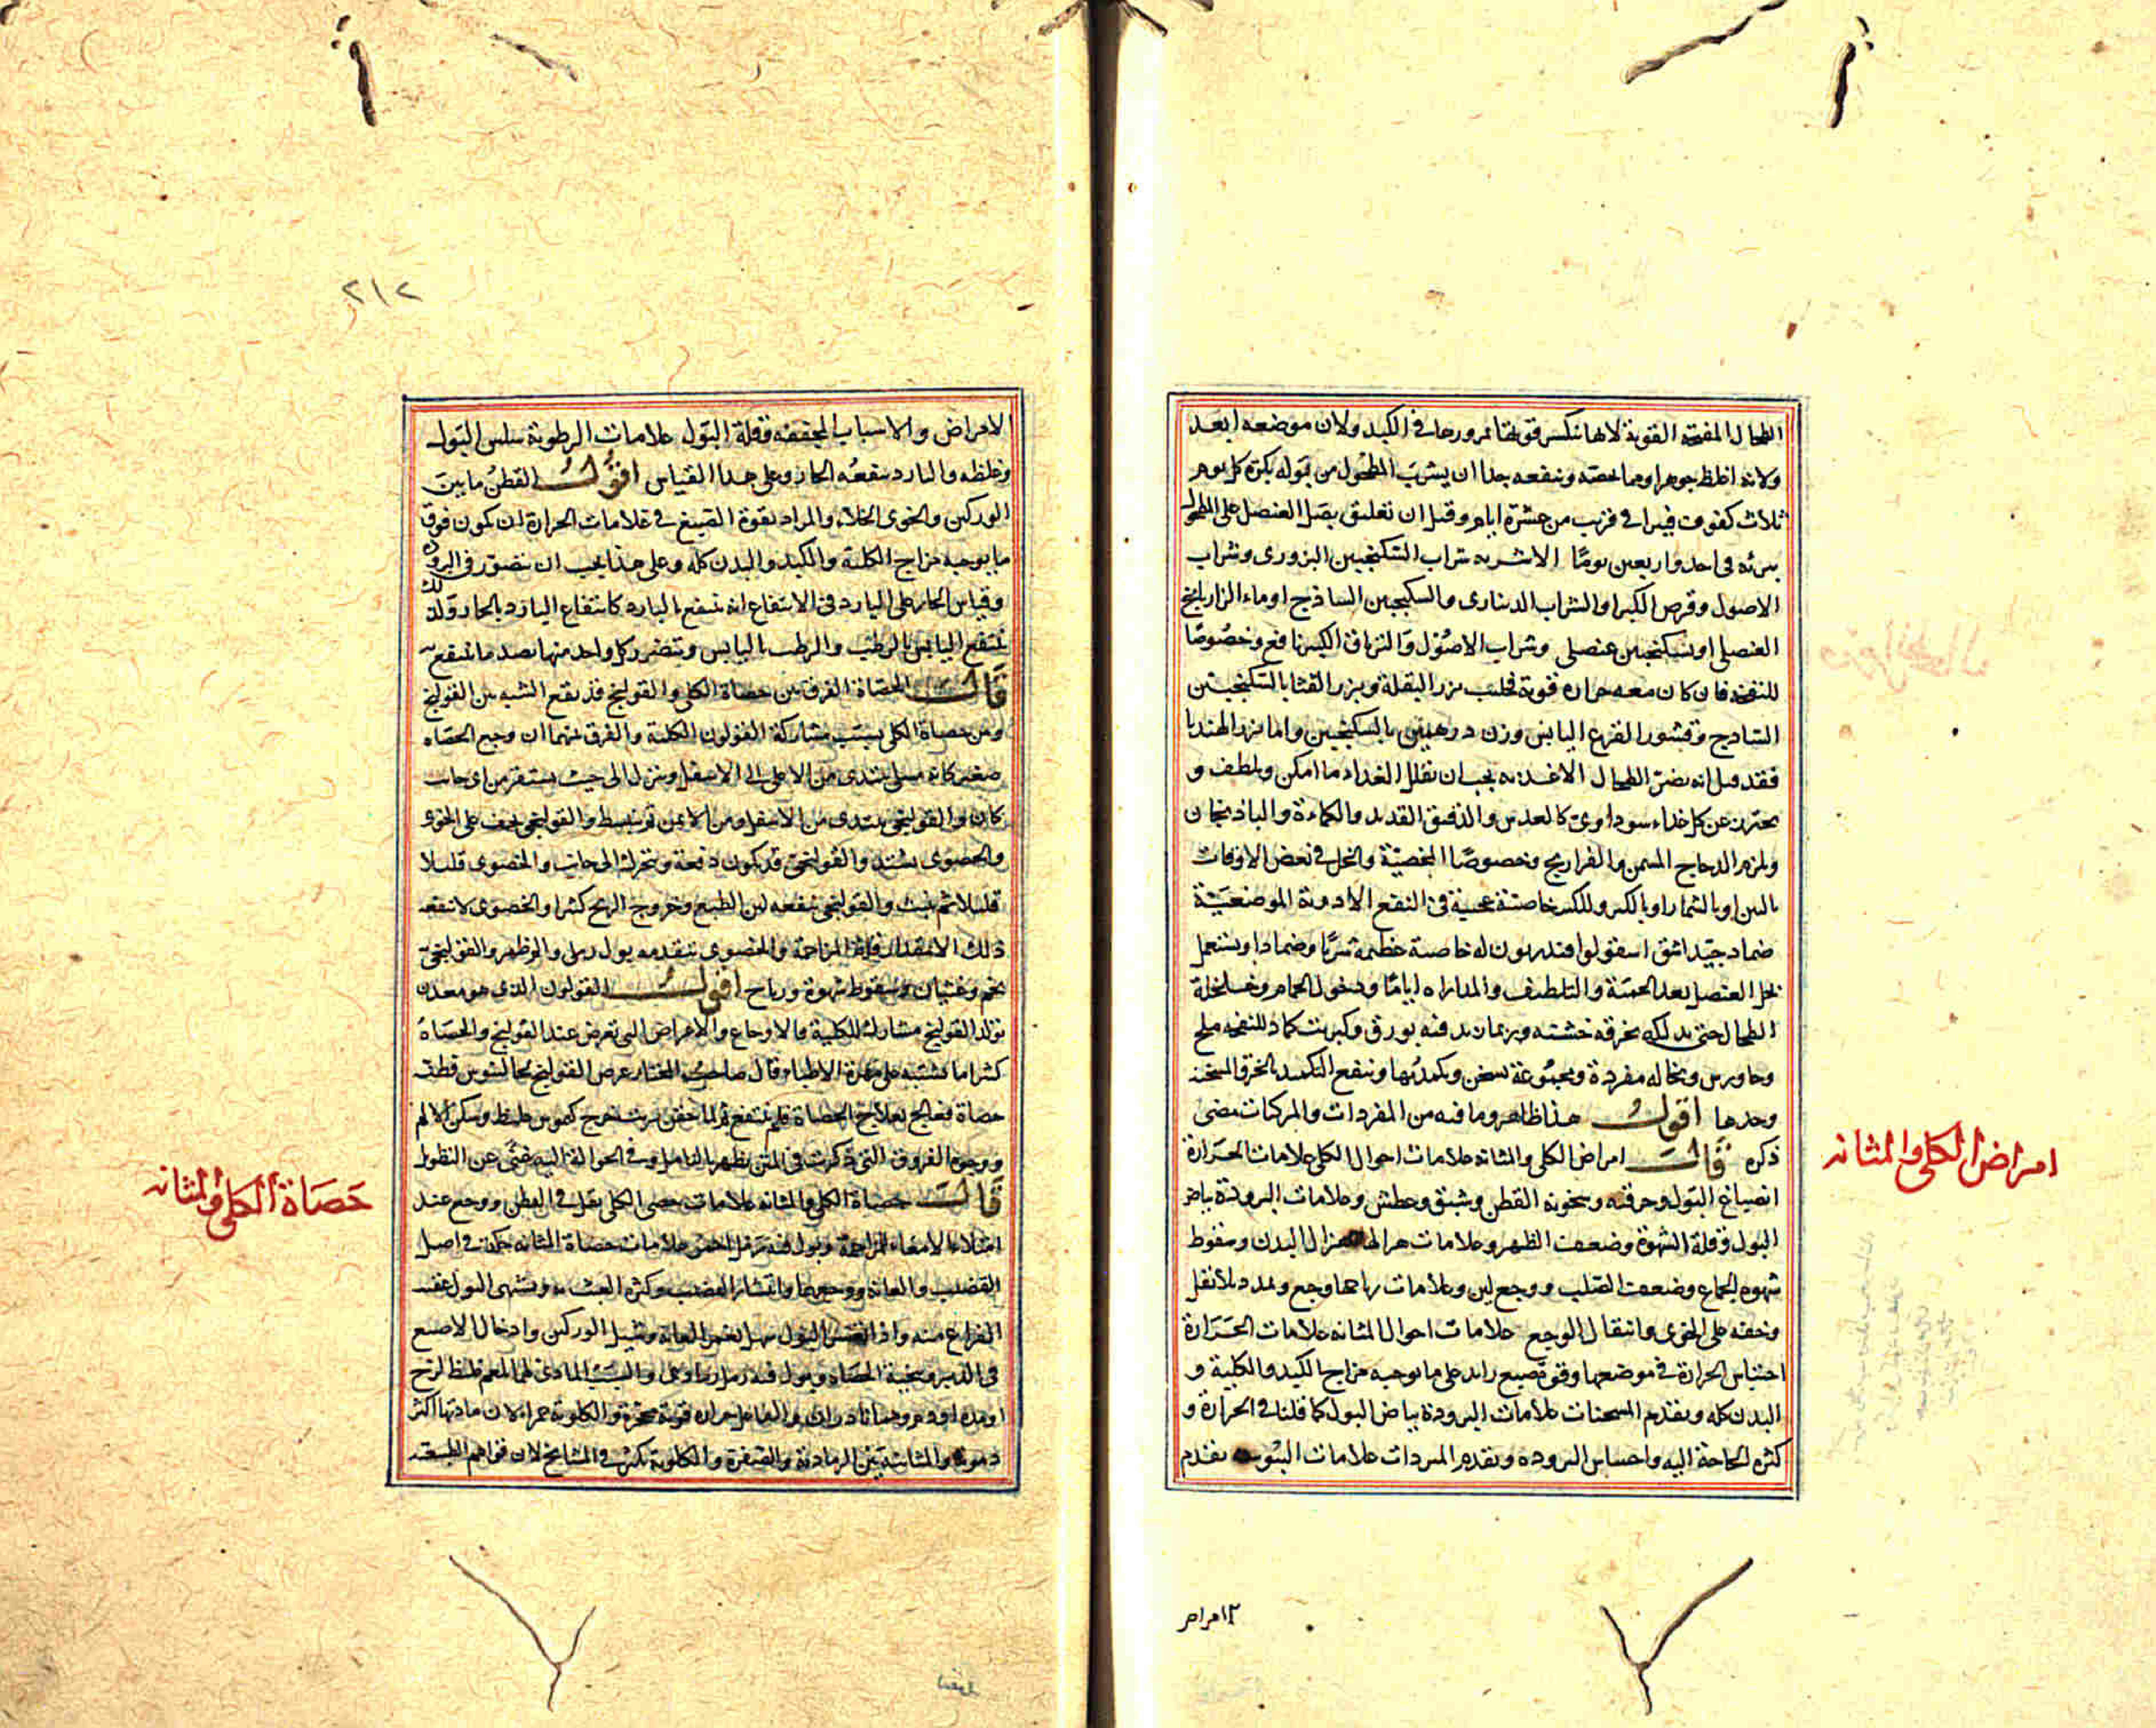 الطحال المفتحة القوية لانها تنكسر قوتها بمرورها في الكبد ولان موضعه ابعد
ولانه اغلظ جوهرا ومما يخصه وينفعه جدا ان يشرب المطحول من بوله بكرة كل يوم
ثلاث كفوف فيبرا في قريب من عشرة ايام وقيل ان تعليق بصل العنصل على المطحول
يبرئه في احد واربعين يوما الاشربه شراب السكنجبين البزوري وشراب
الاصول وقرص الكبر او الشراب الديناري والسكنجبين الساذج او ماء الرازيانج
العنصلي او سكنجبين عنصلي وشراب الاصول والترياق الكبير نافع وخصوصا
للنفخه فان كان معه حراره قوية فحليب بزر البقلة وبزر القثا بالسكنجبين
الساذج وقشور القرع اليابس وزن درهمين بالسكنجبين واما بزر الهندبا
فقد قيل انه يضر الطحال الاغذيه يجب ان يقلل الغداء ما امكن ويلطف و
يحترز عن كل غذاء سوداوي كالعدس والدقيق القديد والكماءة والباذنجان
ويلزم الدجاج المسمن والفراريج وخصوصا المخصية والخل في بعض الاوقات
بالتين او بالثمار او بالكبر وللكبر خاصية عجيبة في النفع الادوية الموضعية
ضماد جيد اشق اسقولوا قندريون له خاصية عظيمة شربا وضمادا ويستعمل
بخل العنصل بعد الحمية والتلطيف والمداراه اياما ودخول الحمام وغسل محلة
الطحال حتى يدلكه بخرقه خشنه وربما زيد فيه بورق وكبريت كماد للنفخه ملح
وجاورس ونخاله مفردة ومجموعة تسخن ويكمد بها وينفع التكميد بالخرق المسخنه
وحدها اقول هذا ظاهر وما فيه من المفردات والمركبات مضى
ذكره قال امراض الكلى والمثانه علامات احوال الكلى علامات الحرارة
انصباغ البول وحرقته وسخونة القطن وشبق وعطش وعلامات البرودة بياض
البول وقلة الشهوة وضعف الظهر وعلامات هزالها هزال البدن وسقوط
شهوه الجماع وضعف الصلب ووجع لين وعلامات رياحها وجع وتمدد بلا ثقل
وخفه على الخوى وانتقال الوجع علامات احوال المثانه علامات الحرارة
احتباس الحرارة في موضعها وقوة صبغ زايد على ما يوجبه مزاج الكبد والكلية و
البدن كله وتقدم المسخنات علامات البرودة بياض البول كما قلنا في الحرارة و
كثرة الحاجة اليه واحساس البروده وتقدم المبردات علامات اليبوسه تقدم
امراض الكلى والمثانه
٢ امراض
٢١٢
الامراض والاسباب المجففه وقلة البول علامات الرطوبة سلس البول
وغلظه والبارد ينفعه الحار وعلى هذا القياس اقول القطن ما بين
الوركين والخوى الخلاء والمراد بقوة الصبغ في علامات الحرارة ان يكون فوق
ما يوجبه مزاج الكلية والكبد والبدن كله وعلى هذا يجب ان يتصور في البرودة
وقياس الحار على البارد في الانتفاع انه ينتفع بالبارد كانتفاع البارد بالحار وكذلك
ينتفع اليابس بالرطب والرطب باليابس ويتضرر كل واحد منها بضد ما ينتفع به
قال الحصاة الفرق بين حصاة الكلى والقولنج قد يقع الشبه بين القولنج
وبين حصاة الكلى بسبب مشاركة القولون الكلية والفرق بينهما ان وجع الحصاه
صغير كانه مسلي يبتدى من الاعلى الى الاسفل وينزل الى حيث يستقر من اي جانب
كان والقولنجي يبتدى من الاسفل ومن الايمن ثم ينبسط والقولنجي يخف على الخوى
والحصوى يشتد والقولنجي قد يكون دفعة ويتحرك الى جانب والحصوى قليلا
قليلا ثم يثبت والقولنجي ينفعه لين الطبع وخروج الريح كثيرا والحصوى لا ينفعه
ذلك الا بمقدار قلة المزاحمة والحصوى يتقدمه بول رمل والم ظهر والقولنجي
تخم وغثيان وسقوط شهوة ورياح اقول القولون الذي هو معدن
تولد القولنج مشارك للكلية فالاوجاع والاعراض التي تعرض عند القولنج والحصاة
كثيرا ما تشتبه على مهرة الاطباء وقال صاحب المختار عرض القولنج لجالينوس فظنه
حصاة فعالج بعلاج الحصاة فلم ينتفع ثم لما حقن بزيت خرج كيموس غليظ وسكن الالم
ووجوه الفروق التي ذكرت في المتن يظهر بالتامل وفي الحوالة اليه غنى عن التطويل
قال حصاة الكلى والمثانه علامات حصى الكلى ثقل في القطن ووجع عند
امتلاء الامعاء للمزاحمة وبول فيه رمل احمر علامات حصاة المثانه حكة في اصل
القضيب والعانة ووجعهما وانتشار القضيب وكثرة العبث به ويشتهى البول عقب
الفراغ منه واذا احتبس البول سهل بغمز العانة وشيل الوركين وادخال الاصبع
في الدبر وتنحية الحصاه وبول فيه رمل رمادى والسبب المادى لهما بلغم غليظ لزج
او مده او دم وهما نادران والفاعل حراره قوية محجرة والكلوية حمراء لان مادتها اكثر
دموية والمثانية بين الرمادية والصفرة والكلوية تكثر في المشايخ لان قواهم الطبيعية
حصاة الكلى والمثانه